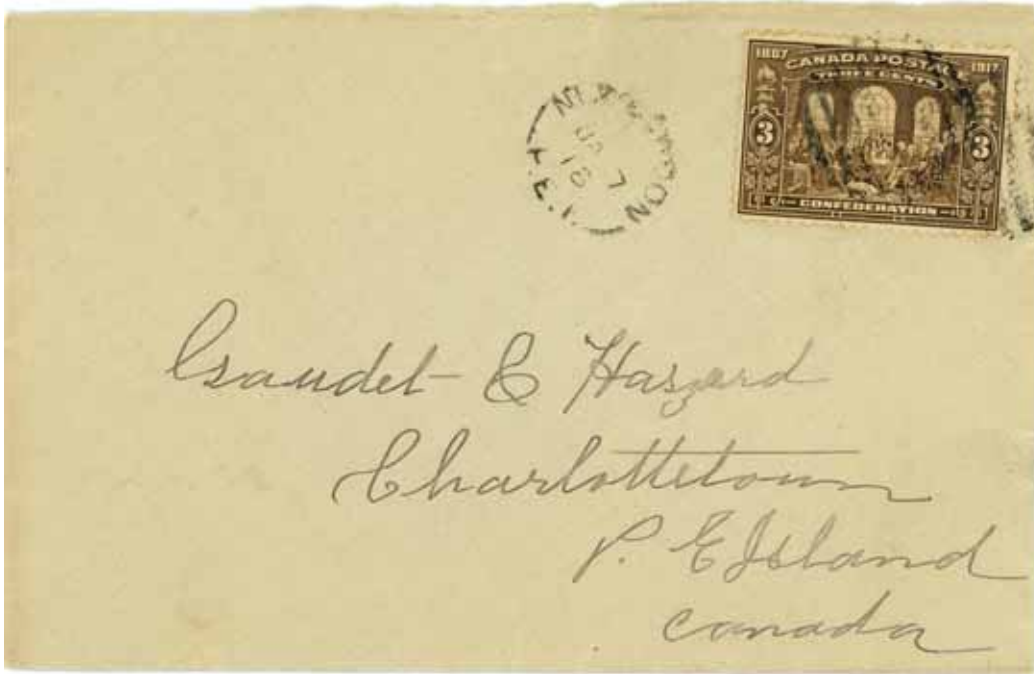 1867 CANADA POSTAGE 1917
THREE CENTS
3 3
CONFEDERATION
P.E.I.
7
Gaudet & Haszard
Charlottetown
P. E Island
Canada